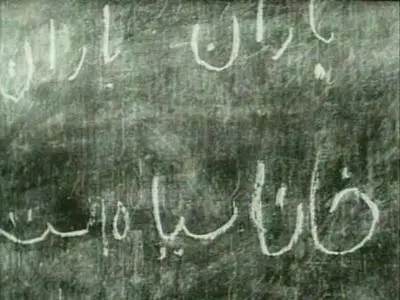 باران باران
خانه سیاه است